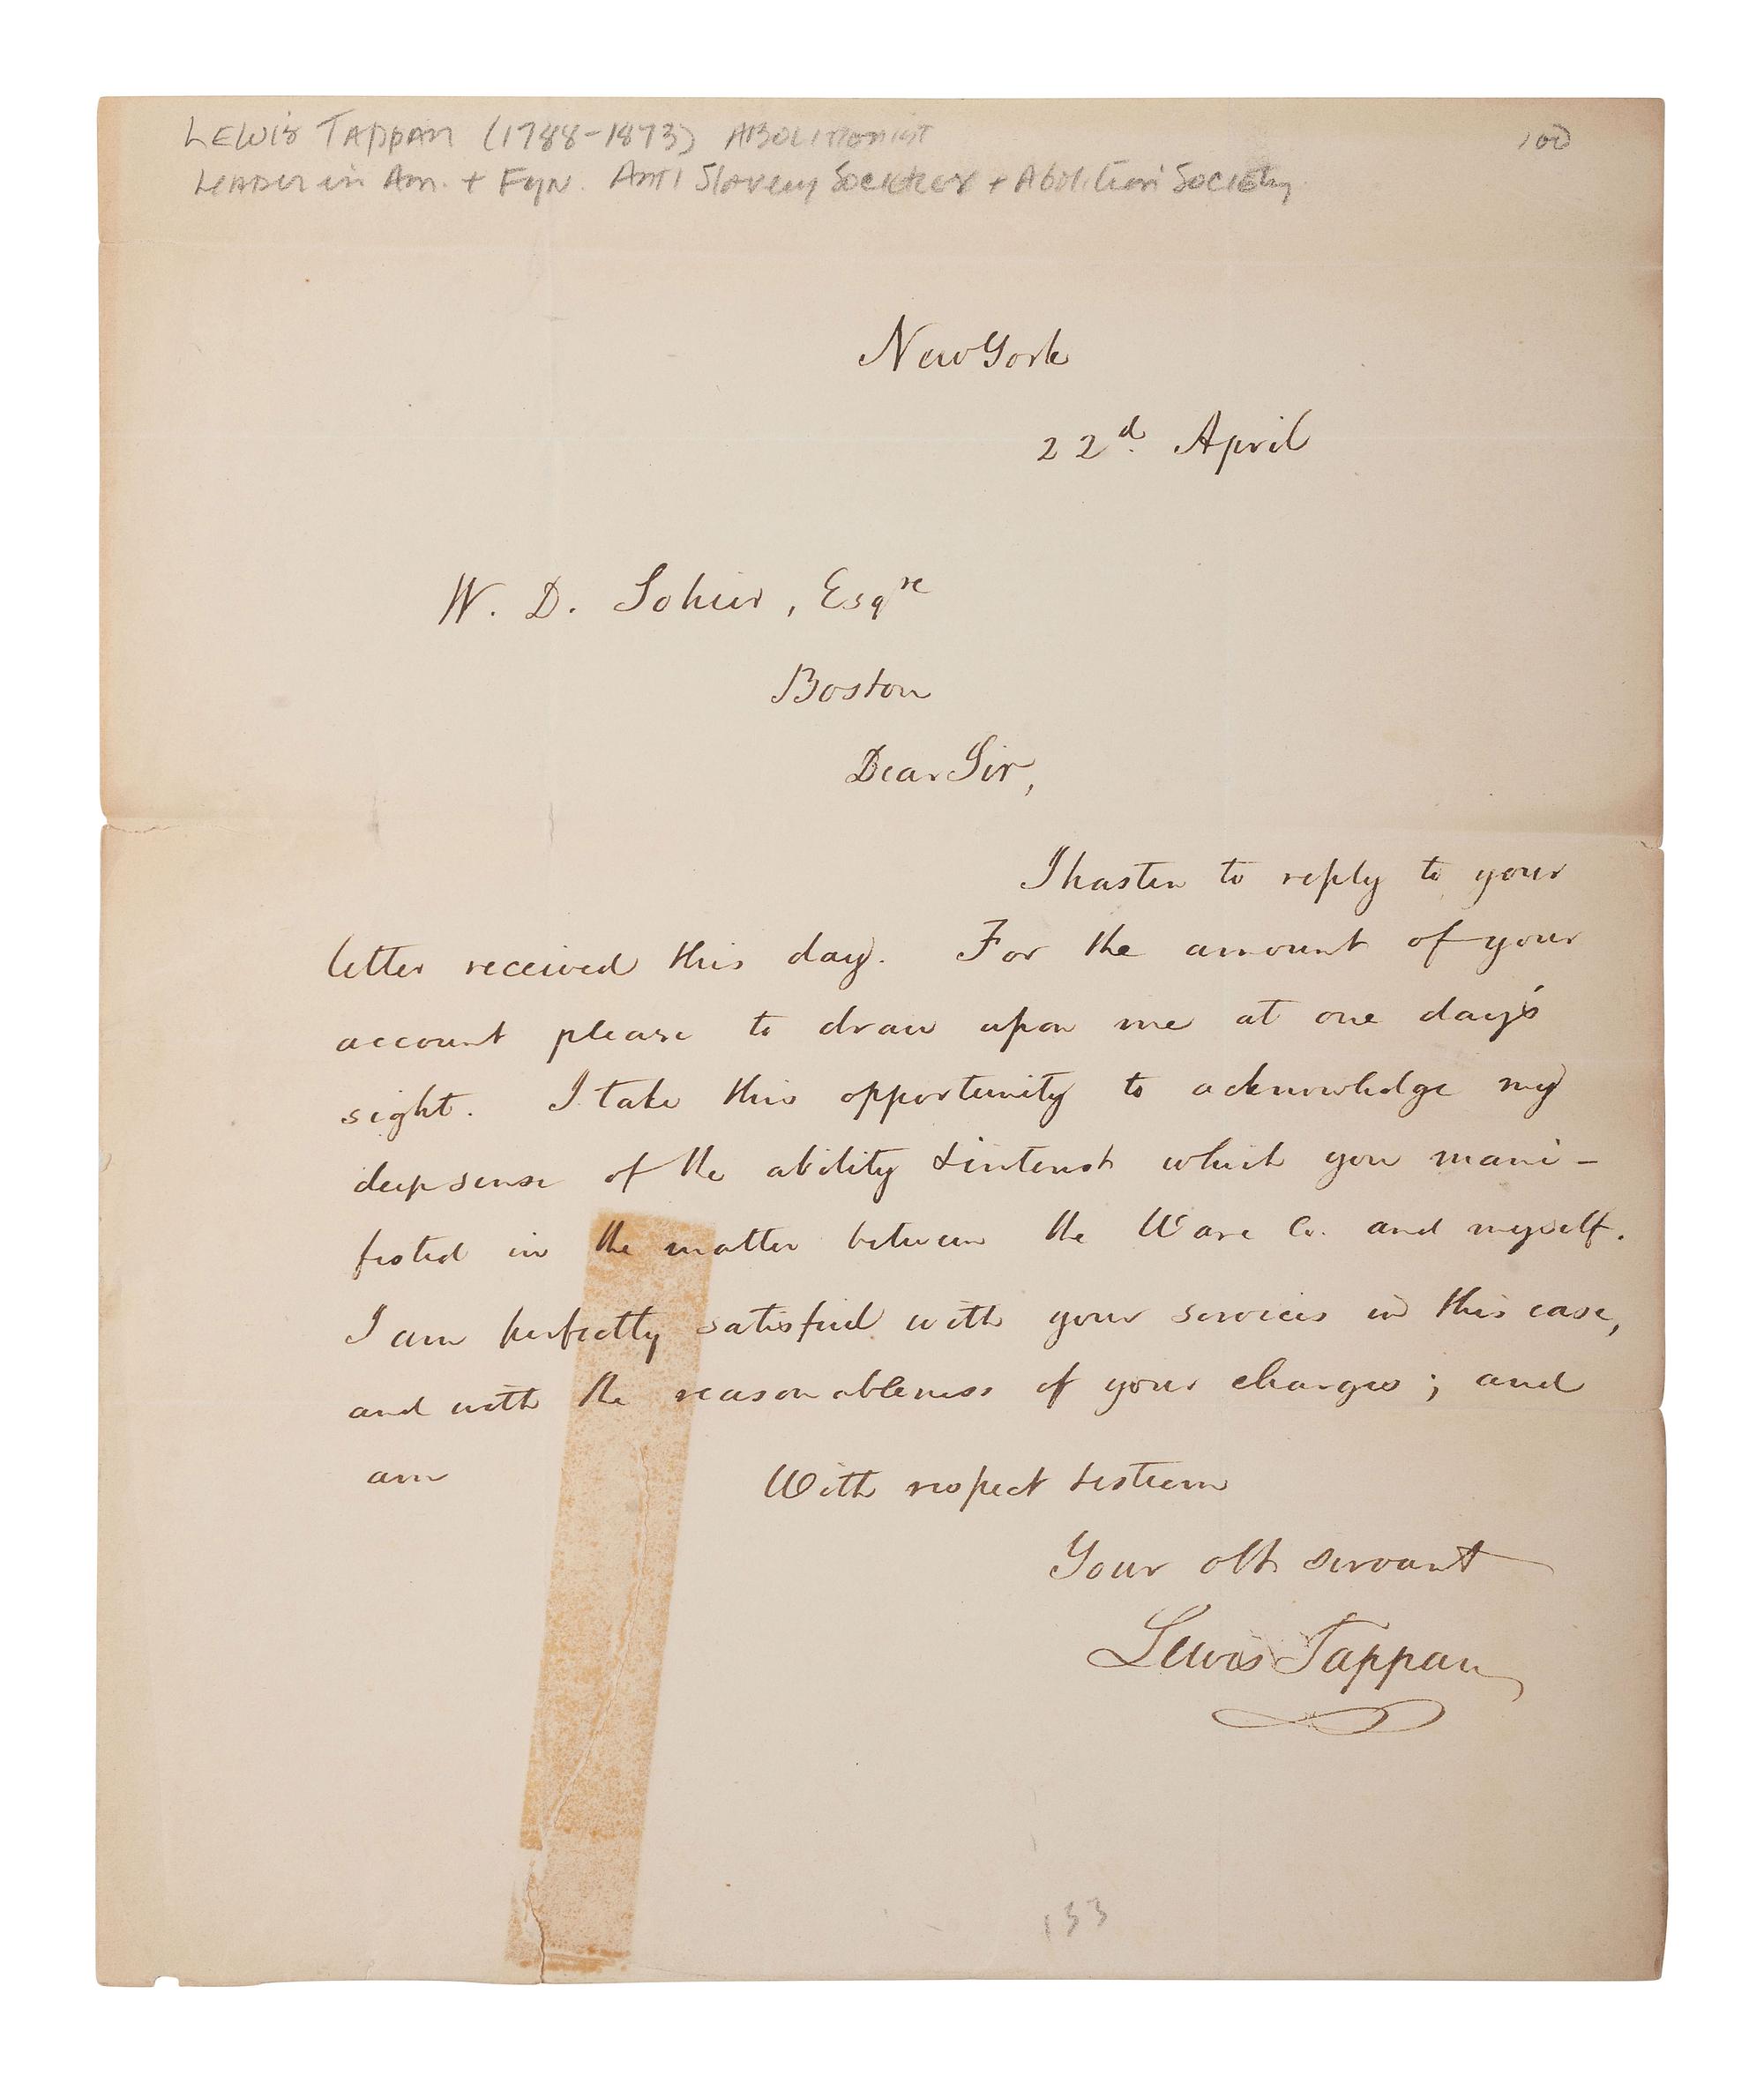 LEWIS TAPPAN (1788-1873) ABOLITIONIST
100
LEADER in Am. + Fgn. Anti Slavery Societies + Abolition Society
New York
22d. April
W. D. Sohier, Esqre
Boston
Dear Sir,
I hasten to reply to your
letter received this day. For the amount of your
account please to draw upon me at one day's
sight. I take this opportunity to acknowledge my
deep sense of the ability & interest which you mani-
fested in the matter between the Ware Co. and myself.
I am perfectly satisfied with your services in this case,
and with the reasonableness of your charges; and
am
With respect & esteem
Your obt servant
Lewis Tappan
133